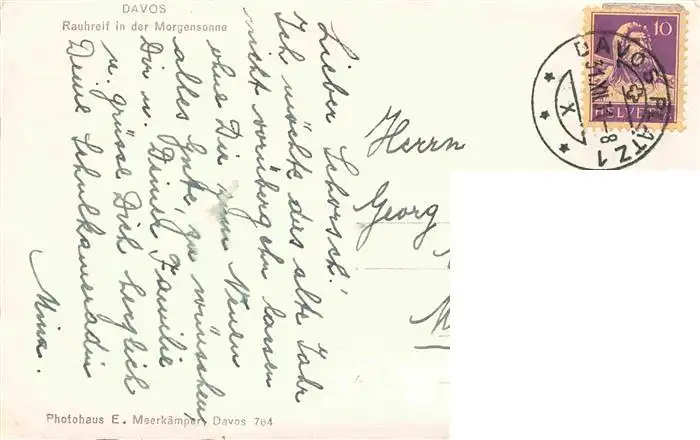 DAVOS
Rauhreif in der Morgensonne
Lieber Schorsch!
Ich möchte das alte Jahr
nicht vorübergehn lassen
ohne Dir zum Neuen
alles Gute zu wünschen,
Dir u. Deiner Familie
u. grüsse Dich herzlich
Deine Schulkameradin
Mina.
Photohaus E. Meerkämper, Davos 764
Herrn
Georg
10
HELVE
DAVOS PLATZ 1